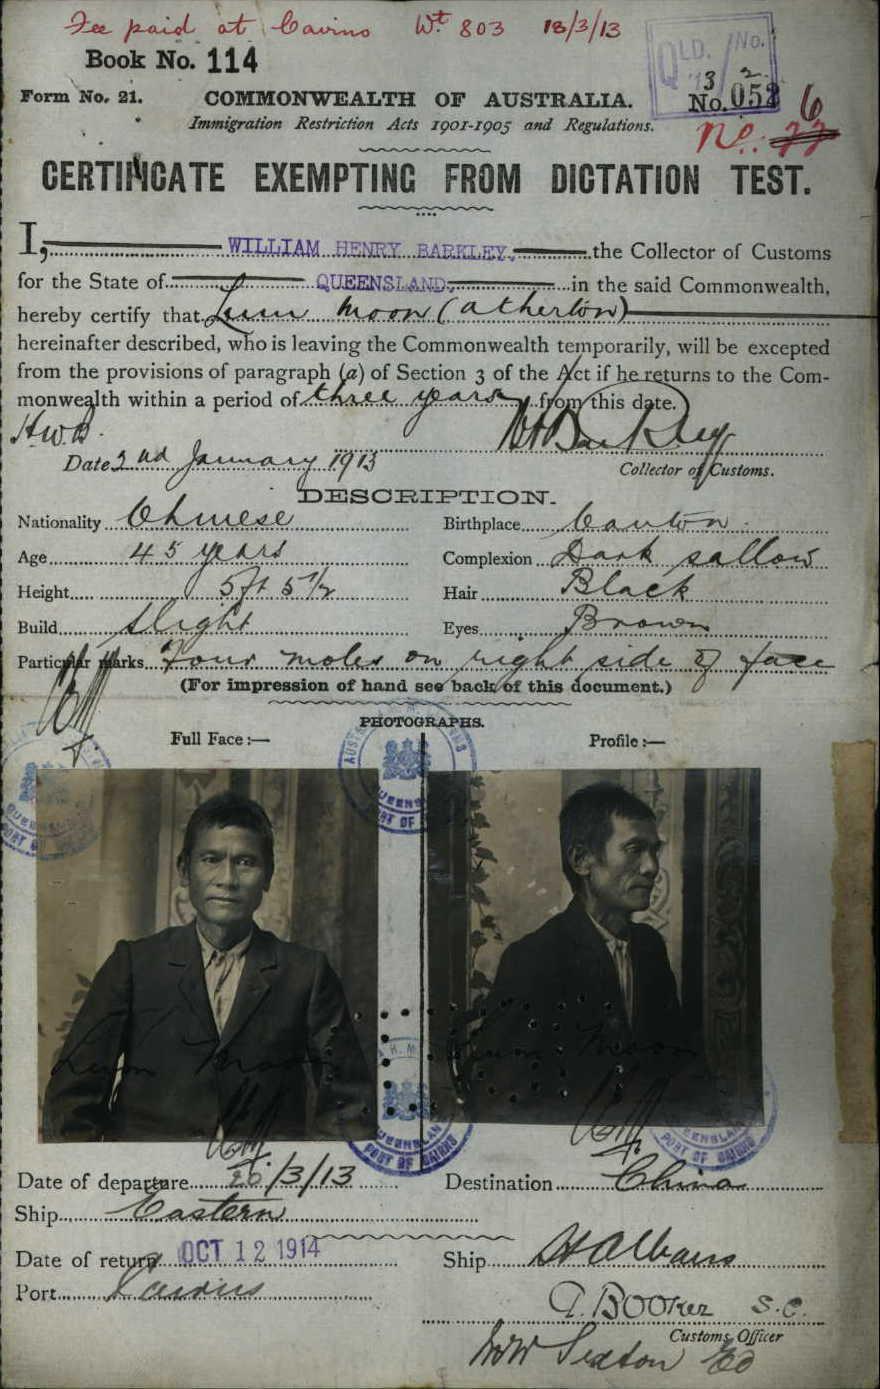 Fee paid at Cairns Wt. 803 18/3/13
Book No. 114
QLD. No.
13 2
Form No. 21. COMMONWEALTH OF AUSTRALIA. No. 052 6
Immigration Restriction Acts 1901-1905 and Regulations. No. 77
CERTIFICATE EXEMPTING FROM DICTATION TEST.
I, WILLIAM HENRY BARKLEY, the Collector of Customs
for the State of QUEENSLAND, in the said Commonwealth,
hereby certify that Lum Moon (Atherton)
hereinafter described, who is leaving the Commonwealth temporarily, will be excepted
from the provisions of paragraph (a) of Section 3 of the Act if he returns to the Com-
monwealth within a period of three years from this date.
H.W.B. WHBarkley
Date 2nd January 1913 Collector of Customs.
DESCRIPTION.
Nationality Chinese Birthplace Canton
Age 45 years Complexion Dark sallow
Height 5ft 5½ Hair Black
Build Slight Eyes Brown
Particular marks Four moles on right side of face
(For impression of hand see back of this document.)
PHOTOGRAPHS.
Full Face:— Profile:—
Lum Moon Lum Moon
QUEENSLAND
PORT OF CAIRNS
Date of departure 20/3/13 Destination China
Ship Eastern
Date of return OCT 12 1914 Ship St Albans
Port Cairns
G. BOOKER S.C.
Customs Officer
Sexton